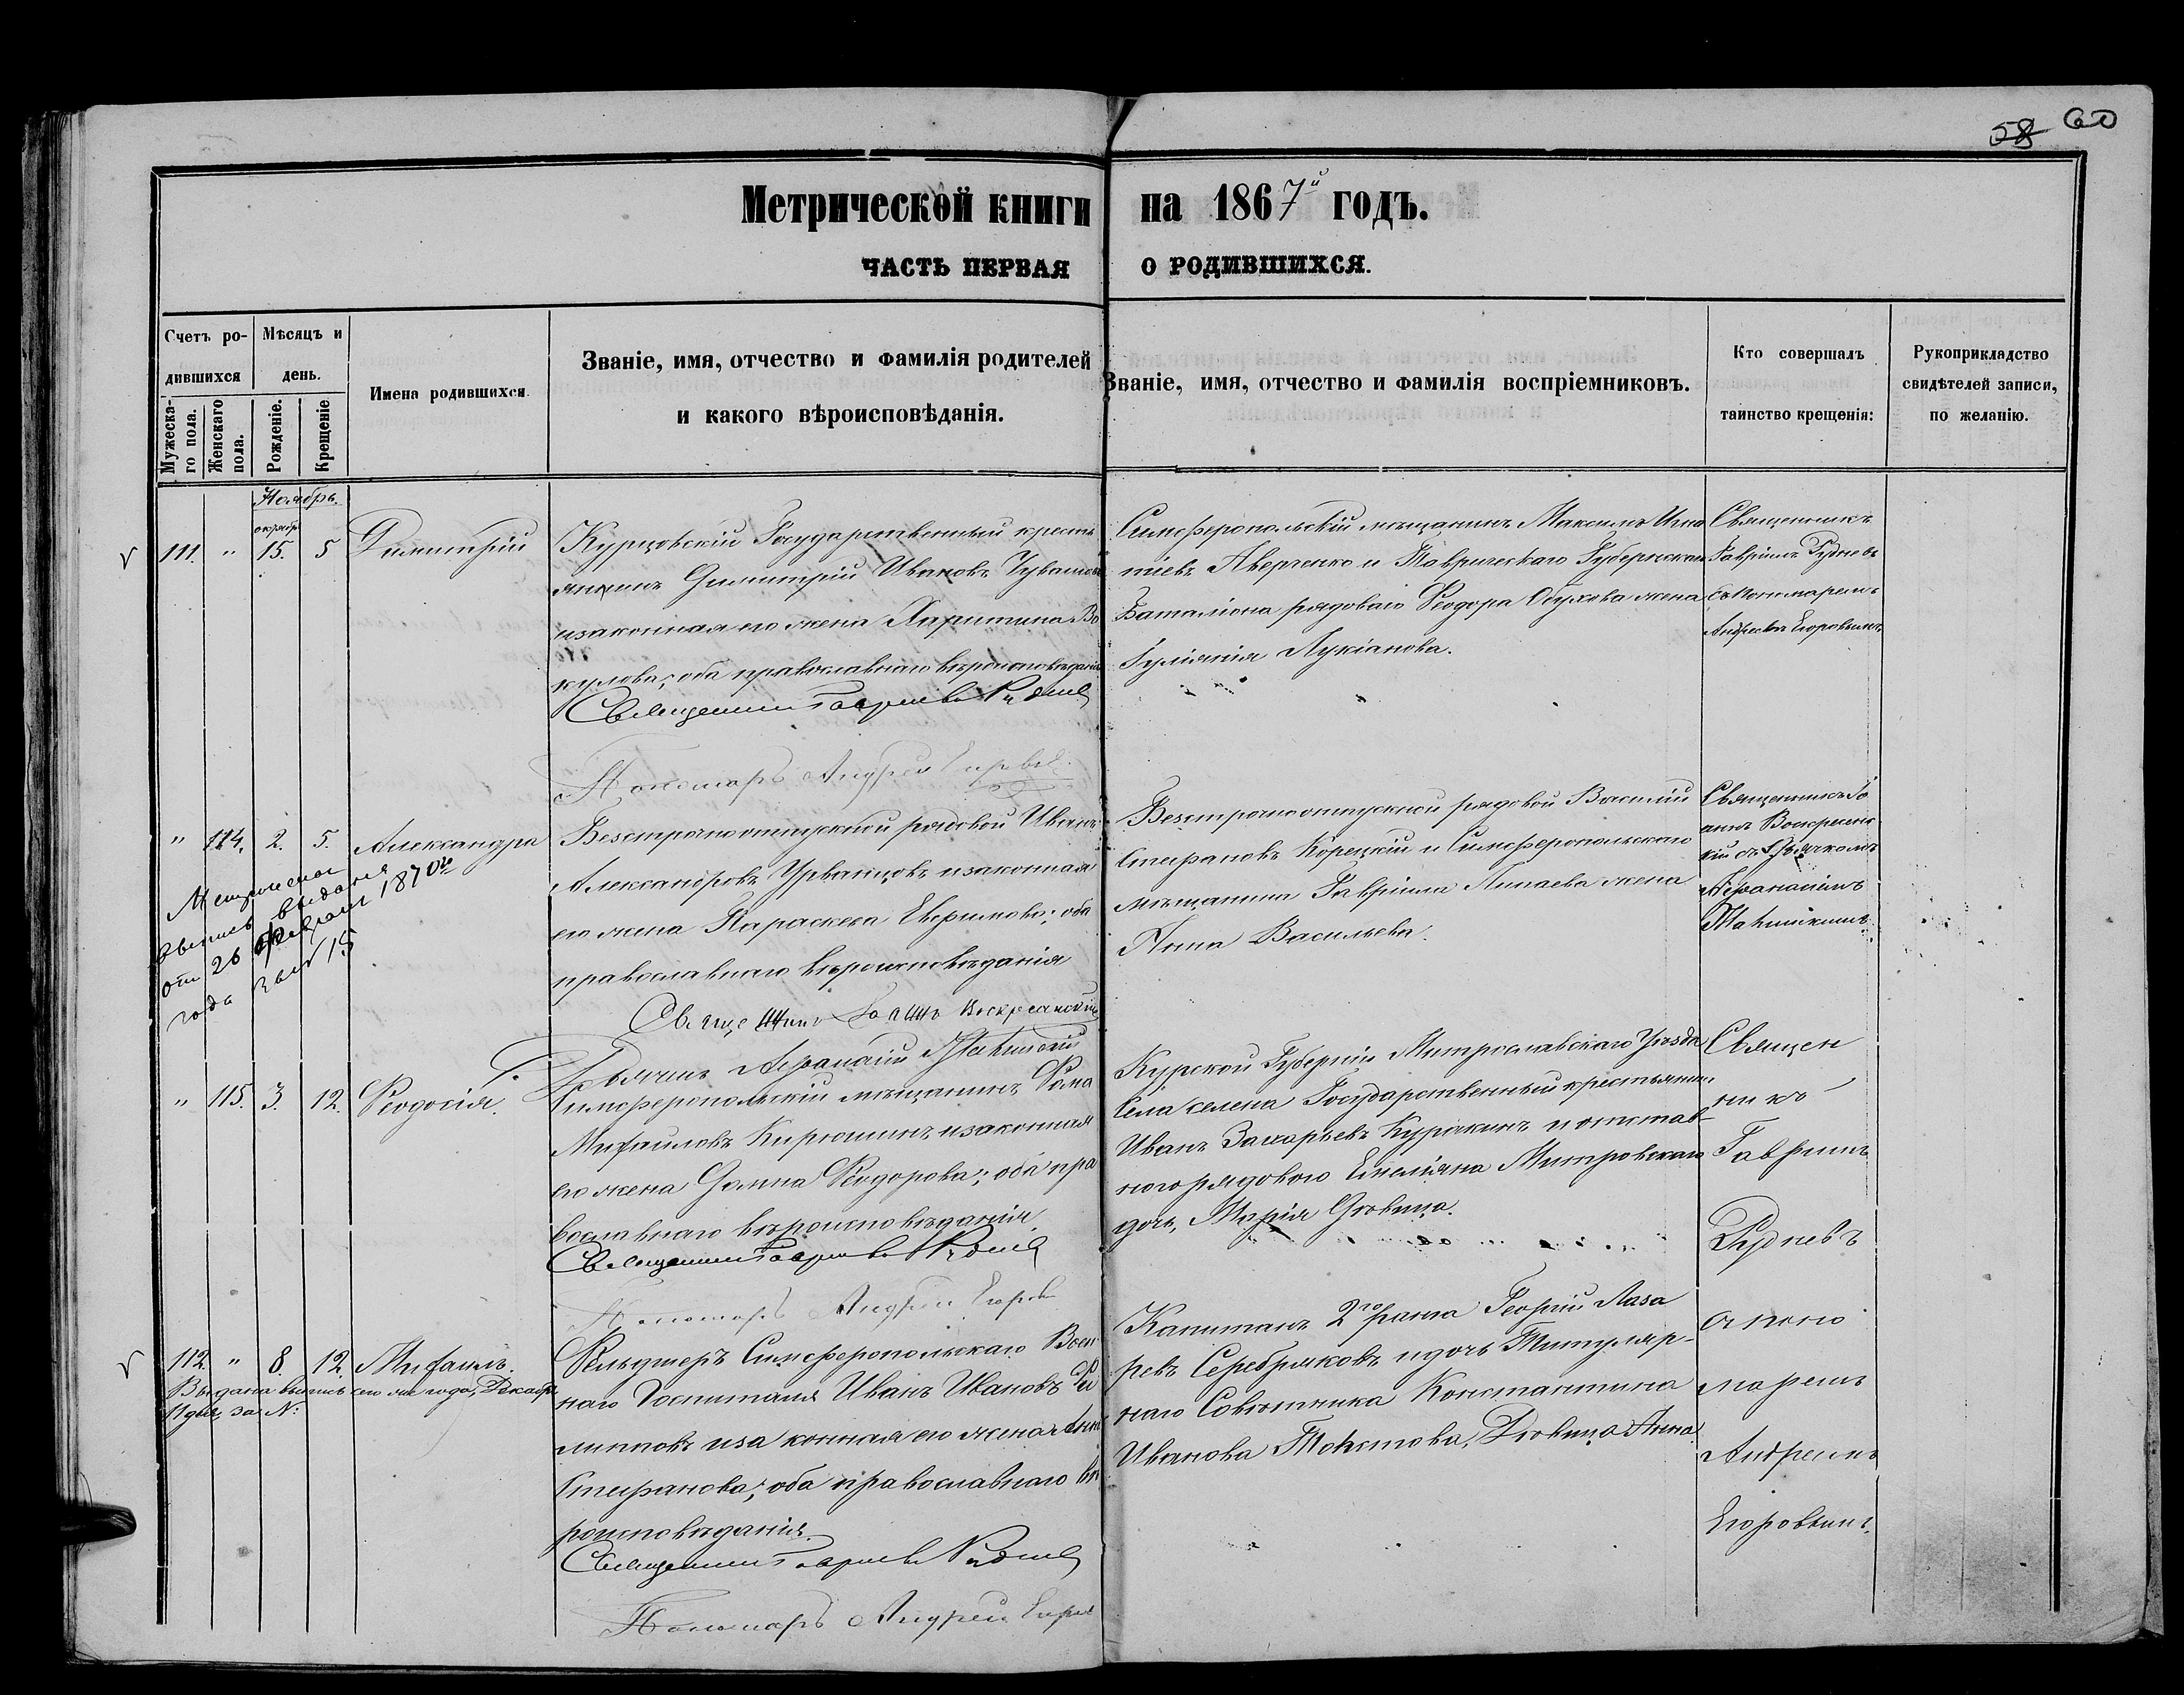 58 60
Метрической книги на 1867й годъ.
ЧАСТЬ ПЕРВАЯ О РОДИВШИХСЯ.
Счетъ ро-
дившихся
Мужеска-
го пола.
Женскаго
пола.
Мѣсяцъ и
день.
Рожденіе.
Крещеніе
Имена родившихся.
Званіе, имя, отчество и фамилія родителей
и какого вѣроисповѣданія.
Званіе, имя, отчество и фамилія воспріемниковъ.
Кто совершалъ
таинство крещенія:
Рукоприкладство
свидѣтелей записи,
по желанію.
Ноябрь.
октябр
111. " 15. 5 Димитрій
Курцовскій Государственный кресть
янинъ Димитрій Ивановъ
изаконная его жена Харитина Во
кулова; оба православнаго вѣроисповѣданія
Священникъ Гавріилъ Рудневъ
Пономарь Андрей Егоровъ
Симферопольскій мѣщанинъ Максимъ Игна
тіевъ Аверченко и Таврическаго Губернскаго
Баталіона рядоваго Ѳеодора Обухова жена
Іуліанія Лукіанова.
Священникъ
Гавріилъ Рудневъ
съ пономаремъ
Андреемъ Егоровымъ.
" 114. 2. 5. Александра
Метрическая
выпись выдана
от 26 февраля 1870го
года за № 15
Безсрочноотпускной рядовой Иванъ
Александровъ Урванцовъ изаконная
его жена Параскева Ефимова; оба
православнаго вѣроисповѣданія
Священникъ Іоаннъ Воскресенскій
Дьячекъ Аѳанасій
Безсрочноотпускной рядовой Василій
Стефановъ Корецкій и Симферопольскаго
мѣщанина Гавріила Липаева жена
Анна Васильева.
Священникъ Іо
аннъ Воскресенс
кій съ дьячкомъ
Аѳанасіемъ
" 115. 3. 12. Ѳеодосія.
Симферопольскій мѣщанинъ Ѳома
Михаиловъ Кирюшинъ изаконная
его жена Домна Ѳеодорова; оба пра
вославнаго вѣроисповѣданія.
Священникъ Гавріилъ Рудневъ
Пономарь Андрей Егоровъ
Курской Губерніи Уѣзда
Села Государственный крестьянинъ
Иванъ Захарьевъ Курякинъ и отстав-
ного рядоваго Емеліяна Митровскаго
дочь, Марія Дѣвица.
Священ
никъ
Гавріилъ
Рудневъ
112. " 8 12. Михаилъ.
Выдана выпись сего же года, Декабр.
11 дня, за №:
Фельдшеръ Симферопольскаго Воен
наго Госпиталя Иванъ Ивановъ Фи
липповъ изаконная его жена Анна
Стефанова; оба православнаго вѣ
роисповѣданія.
Священникъ Гавріилъ Рудневъ
Пономарь Андрей Егоровъ
Капитанъ 2го ранга Георгій Лаза
ревъ Серебряковъ и дочь Титуляр-
наго Совѣтника Константина
Иванова Дѣвица Анна.
с поно
маремъ
Андреемъ
Егоровымъ.